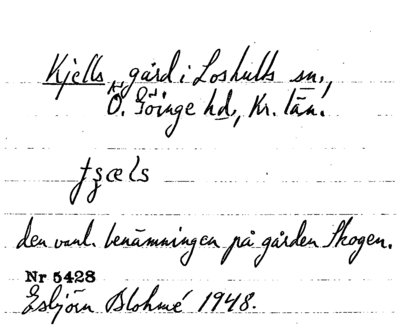 Kjells, gård i Loshults sn.,
Ö. Göinge hd, Kr. län.
den vanl. benämningen på gården Skogen.
Nr 5428
Esbjörn Blohmé 1948.